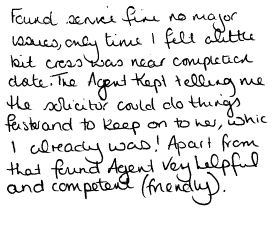 Found service fine no major
issues, only time I felt a little
bit cross was near completion
date. The Agent Kept telling me
the solicitor could do things
faster and to keep on to her, whic
I already was! Apart from
that found Agent very helpful
and competent (friendly).